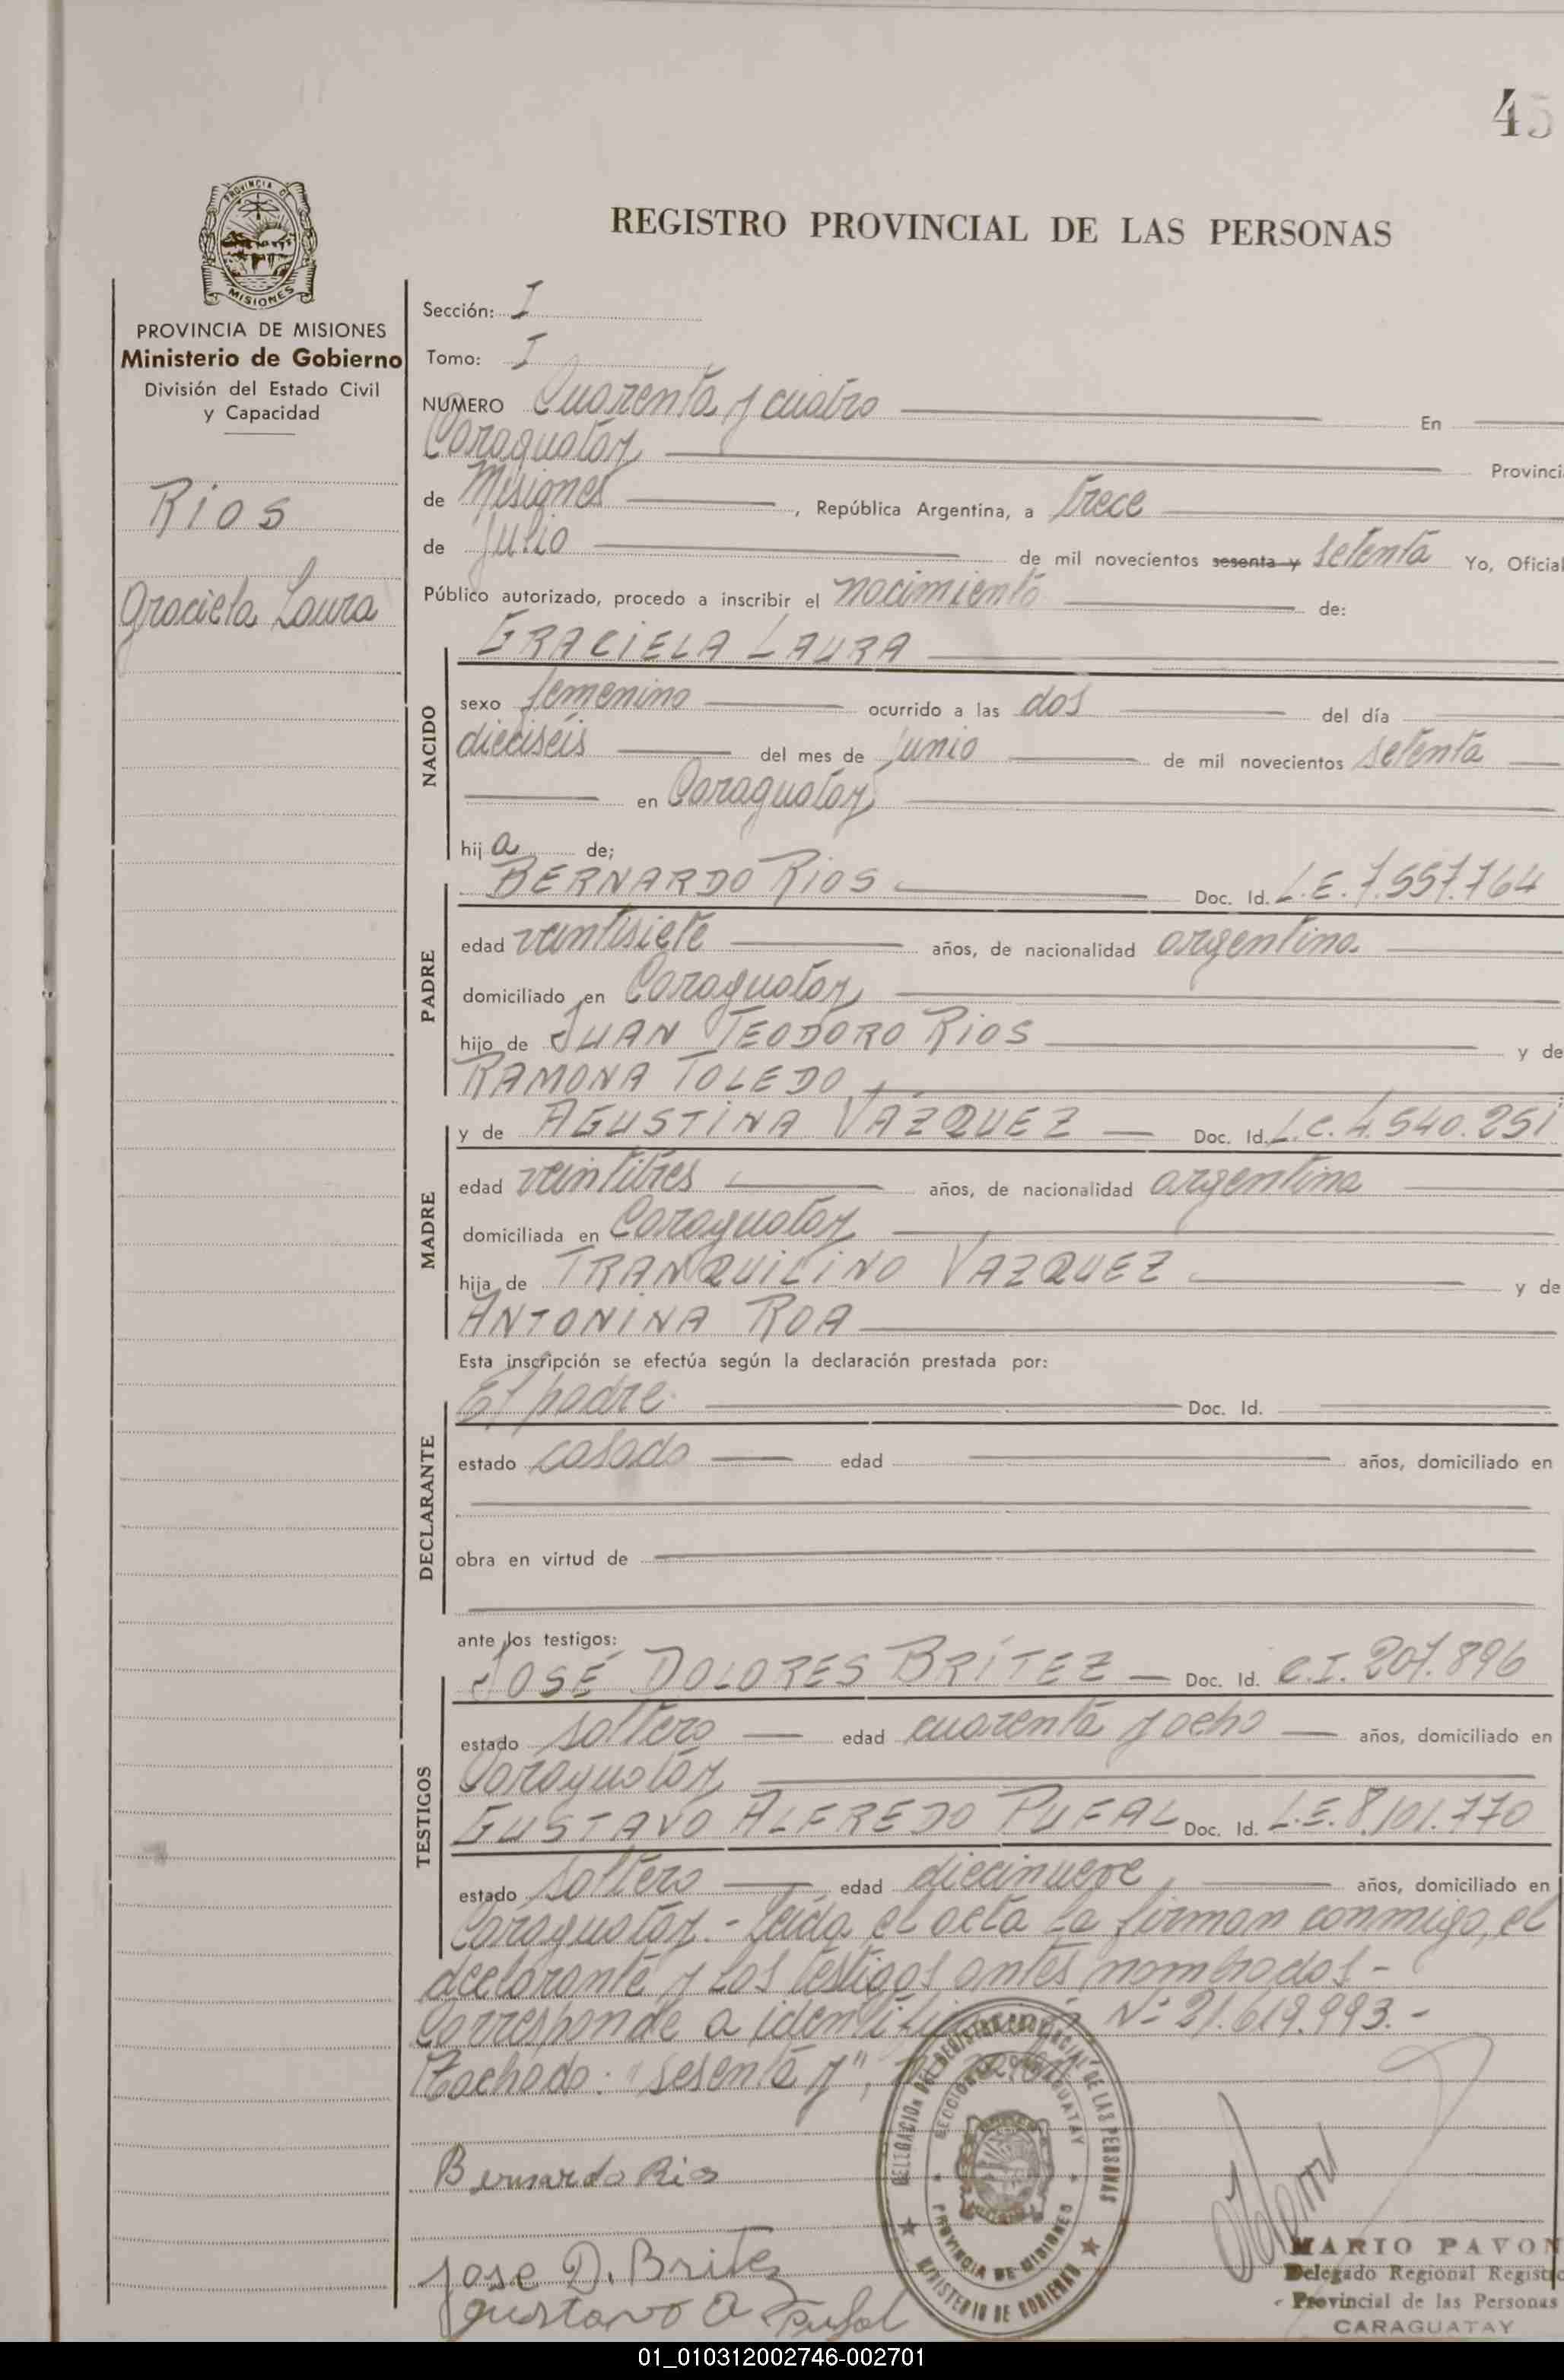 45
PROVINCIA DE
MISIONES
REGISTRO PROVINCIAL DE LAS PERSONAS
PROVINCIA DE MISIONES
Ministerio de Gobierno
División del Estado Civil
y Capacidad
Rios
Graciela Laura
Sección: I
Tomo: I
NUMERO Cuarenta y cuatro En
Caraguatay Provinci
de Misiones, República Argentina, a trece
de julio de mil novecientos sesenta y setenta Yo, Oficial
Público autorizado, procedo a inscribir el nacimiento de:
NACIDO
GRACIELA LAURA
sexo femenino ocurrido a las dos del día
dieciseis del mes de junio de mil novecientos setenta
en Caraguatay
hija de;
PADRE
BERNARDO RIOS Doc. Id. L.E. 7.557.764
edad veintisiete años, de nacionalidad argentina
domiciliado en Caraguatay
hijo de JUAN TEODORO RIOS y de
RAMONA TOLEDO
MADRE
y de AGUSTINA VAZQUEZ Doc. Id. L.C. 4.540.251
edad veintitres años, de nacionalidad argentina
domiciliada en Caraguatay
hija de TRANQUILINO VAZQUEZ y de
ANTONINA ROA
Esta inscripción se efectúa según la declaración prestada por:
DECLARANTE
El padre Doc. Id.
estado casado edad años, domiciliado en
obra en virtud de
ante los testigos:
TESTIGOS
JOSÉ DOLORES BRÍTEZ Doc. Id. C.I. 207.896
estado soltero edad cuarenta y ocho años, domiciliado en
Caraguatay
GUSTAVO ALFREDO PUFAL Doc. Id. L.E. 8.101.770
estado soltero edad diecinueve años, domiciliado en
Caraguatay.- Leída el acta la firman conmigo, el
declarante y los testigos antes nombrados-
Corresponde a N° 21.619.993.-
Tachado: "sesenta y",
DELEGACION DEL REGISTRO PROVINCIAL DE LAS PERSONAS
MINISTERIO DE GOBIERNO
SECCION CARAGUATAY
PROVINCIA DE MISIONES
Bernardo Rios
Jose D. Britez
Gustavo A Pufal
MARIO PAVON
Delegado Regional Registro
Provincial de las Personas
CARAGUATAY
01_010312002746-002701